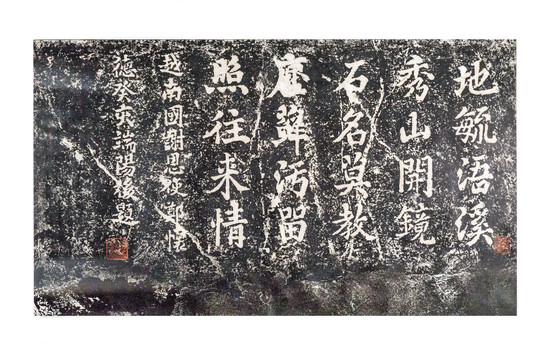 地毓浯溪
秀山開鏡
石名莫教
塵蘚污留
照往來情
越南國謝恩使鄭懷
德癸亥端陽後題